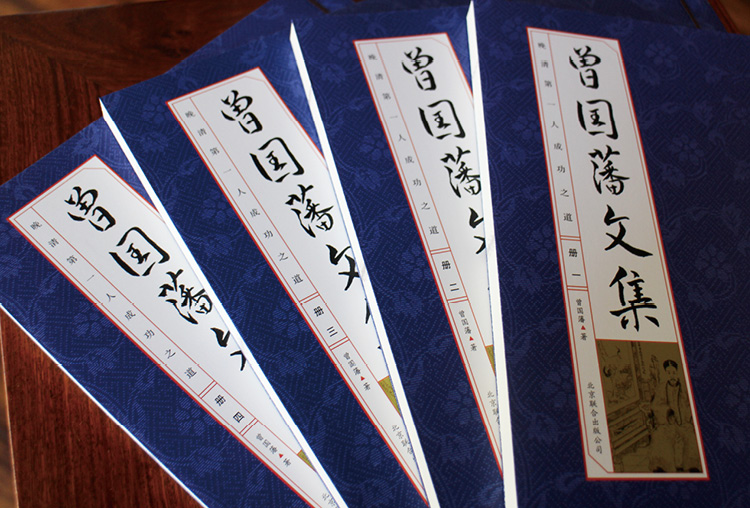 曾国藩文集
晚清第一人成功之道
册一
曾国藩▲著
北京联合出版公司
曾国藩
晚清第一人成功之道
册二
曾国藩▲著
曾国藩文
晚清第一人成功之道
册三
曾国藩▲著
北京联合
曾国藩文
晚清第一人成功之道
册四
曾国藩▲著
北京